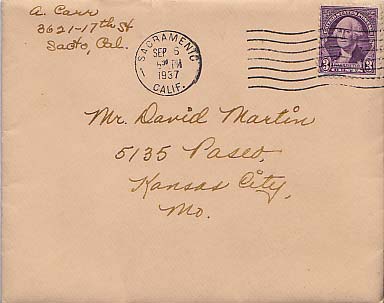 A. Carr
3621-17th St
Sacto, Cal.
SACRAMENTO
SEP 6
PM
1937
CALIF.
3 3
CENTS
Mr. David Martin
5135 Paseo,
Kansas City,
Mo.